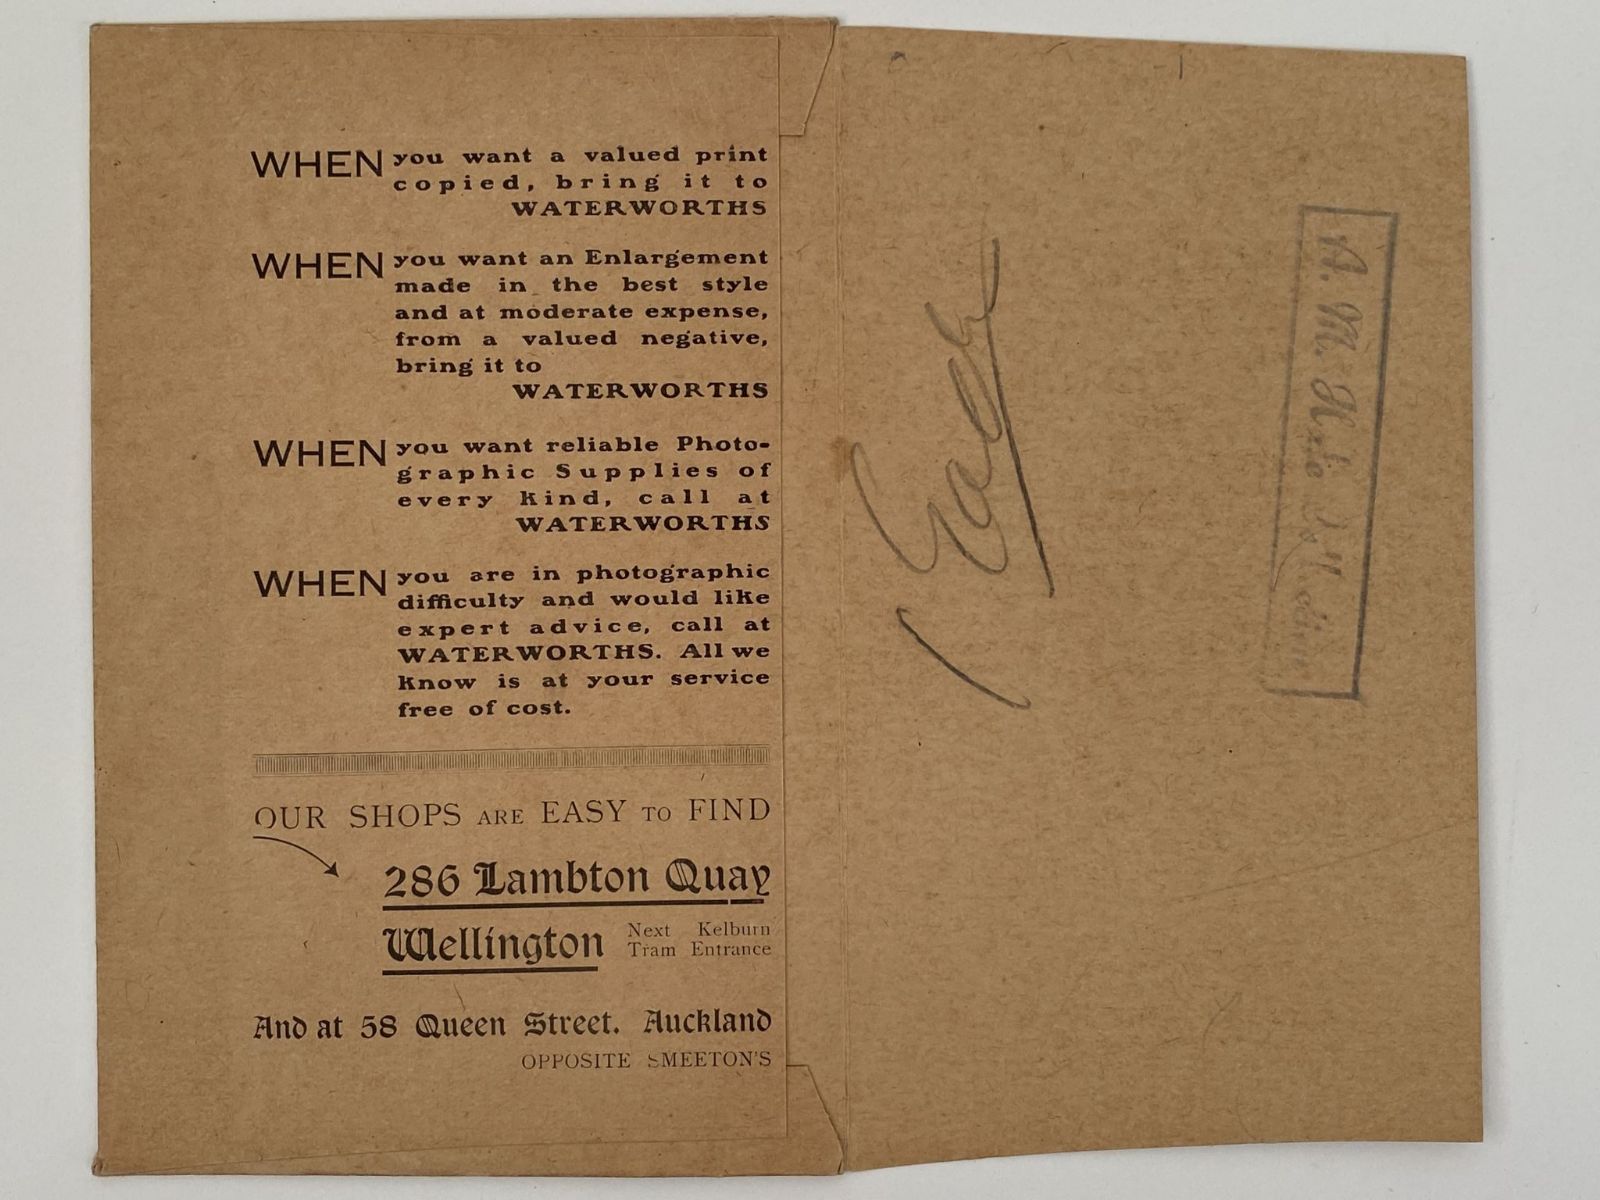 WHEN you want a valued print
copied, bring it to
WATERWORTHS
WHEN you want an Enlargement
made in the best style
and at moderate expense,
from a valued negative,
bring it to
WATERWORTHS
WHEN you want reliable Photo-
graphic Supplies of
every kind, call at
WATERWORTHS
WHEN you are in photographic
difficulty and would like
expert advice, call at
WATERWORTHS. All we
know is at your service
free of cost.
OUR SHOPS ARE EASY TO FIND
286 Lambton Quay
Wellington
Next Kelburn
Tram Entrance
And at 58 Queen Street. Auckland
OPPOSITE SMEETON'S
A. M.